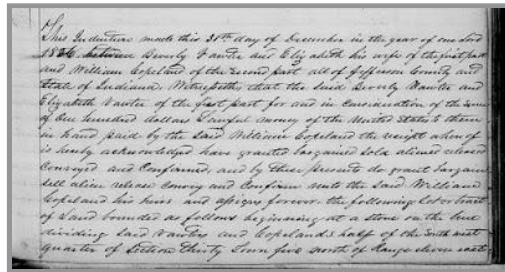 This Indenture made this 31st day of December in the year of our Lord
1836 between Beverly Vawter and Elizabeth his wife of the first part
and William Copeland of the second part all of Jefferson County and
State of Indiana. Witnesseth that the said Beverly Vawter and
Elizabeth Vawter of the first part for and in Consideration of the sum
of One hundred dollars Lawful money of the United States to them
in hand paid by the Said William Copeland the receipt whereof
is hereby acknowledged have granted bargained sold aliened released
Conveyed and Confirmed, and by these presents do grant bargain
sell alien release convey and Confirm unto the said William
Copeland his heirs and assigns forever. the following Lot or tract
of Land bounded as follows beginning at a stone on the line
dividing said Vawters and Copelands half of the South west
quarter of Section Thirty Town five north of Range eleven east